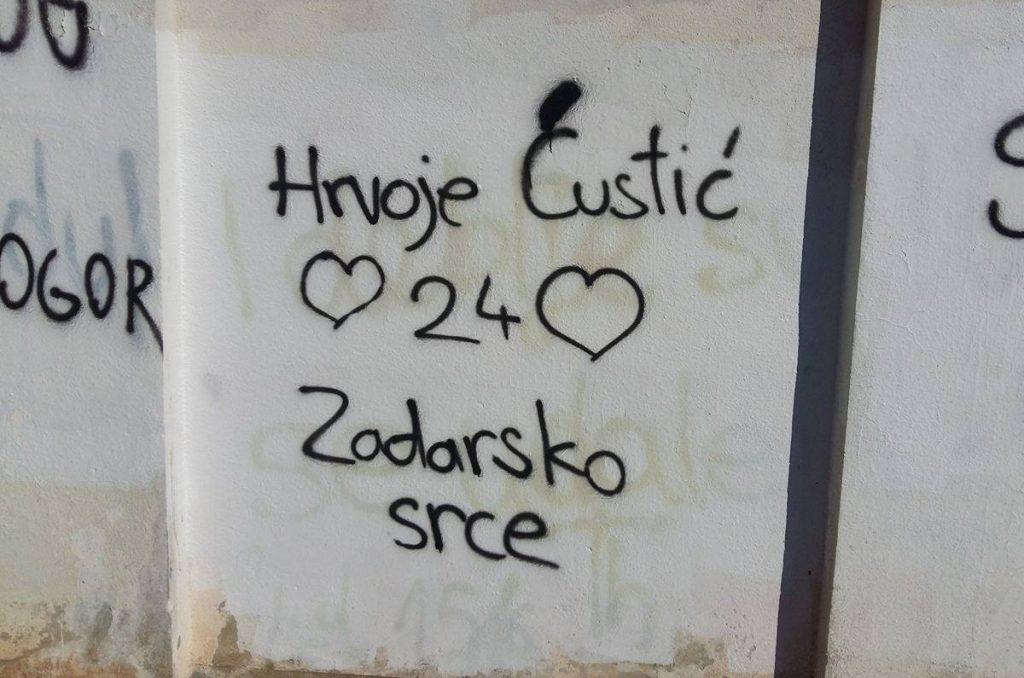 Hrvoje Ćustić
♡ 24 ♡
Zadarsko
srce
OGOR